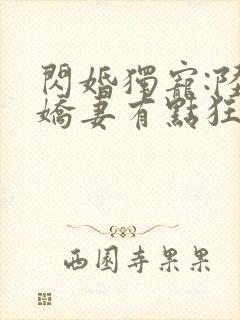 閃婚獨寵:陸
嬌妻有點狂
西園寺果果